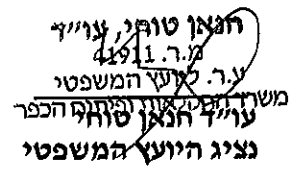 חנאן טוחי, עו״ד
מ.ר. 41911
ע.ר. ליועץ המשפטי
משרד החקלאות ופיתוח הכפר
עו״ד חנאן טוחי
נציג היועץ המשפטי